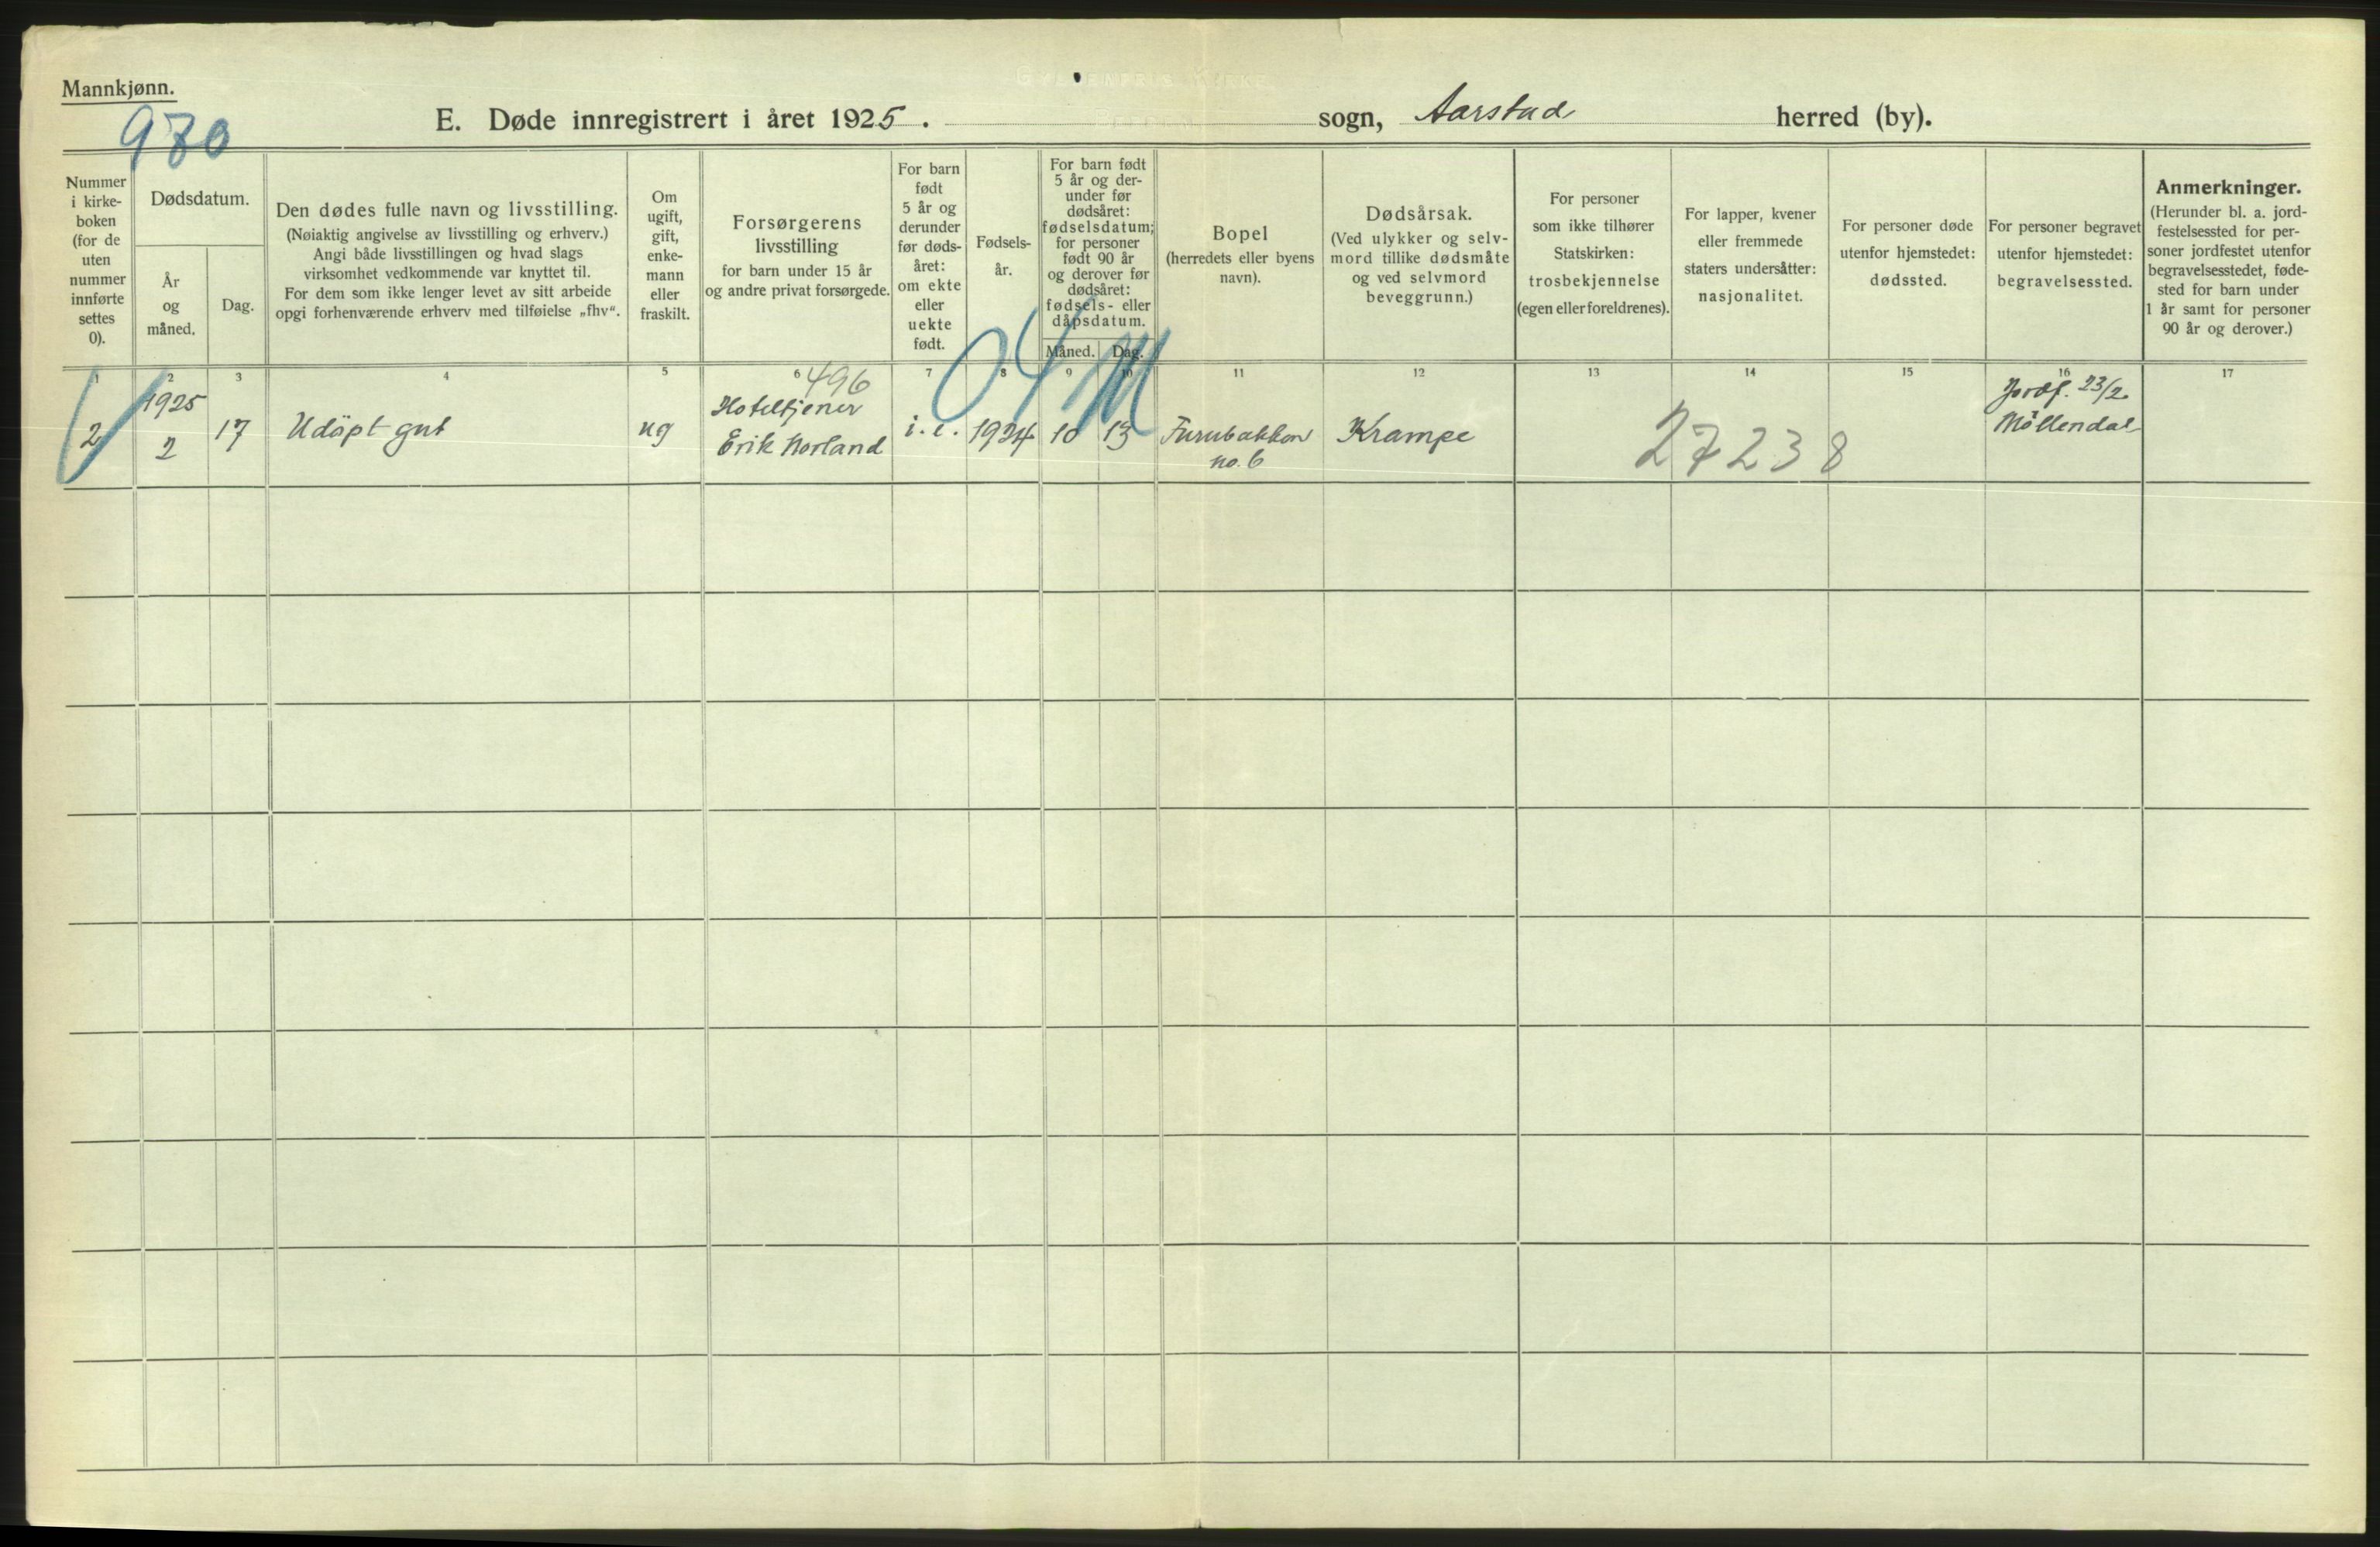 GYLDENPRIS KIRKE
Mannkjønn.
980
E. Døde innregistrert i året 1925. sogn, Aarstad herred (by).
Nummer
i kirke-
boken
(for de
uten
nummer
innførte
settes
0).
Dødsdatum.
År
og
måned.
Dag.
Den dødes fulle navn og livsstilling.
(Nøiaktig angivelse av livsstilling og erhverv.)
Angi både livsstillingen og hvad slags
virksomhet vedkommende var knyttet til.
For dem som ikke lenger levet av sitt arbeide
opgi forhenværende erhverv med tilføielse „fhv“.
Om
ugift,
gift,
enke-
mann
eller
fraskilt.
Forsørgerens
livsstilling
for barn under 15 år
og andre privat forsørgede.
For barn
født
5 år og
derunder
før døds-
året:
om ekte
eller
uekte
født.
Fødsels-
år.
For barn født
5 år og der-
under før
dødsåret:
fødselsdatum;
for personer
født 90 år
og derover før
dødsåret:
fødsels- eller
dåpsdatum.
Måned. Dag.
Bopel
(herredets eller byens
navn).
Dødsårsak.
(Ved ulykker og selv-
mord tillike dødsmåte
og ved selvmord
beveggrunn.)
For personer
som ikke tilhører
Statskirken:
trosbekjennelse
(egen eller foreldrenes).
For lapper, kvener
eller fremmede
staters undersåtter:
nasjonalitet.
For personer døde
utenfor hjemstedet:
dødssted.
For personer begravet
utenfor hjemstedet:
begravelsessted.
Anmerkninger.
(Herunder bl. a. jord-
festelsessted for per-
soner jordfestet utenfor
begravelsesstedet, føde-
sted for barn under
1 år samt for personer
90 år og derover.)
1 2 3 4 5 6 7 8 9 10 11 12 13 14 15 16 17
496
04 M
2
1925
2
17
Udöpt gut
ug
Hoteltjener
Erik Norland
i. e.
1924
10
13
Furubakken
no. 6
Krampe
27238
Jordf. 23/2
Möllendal